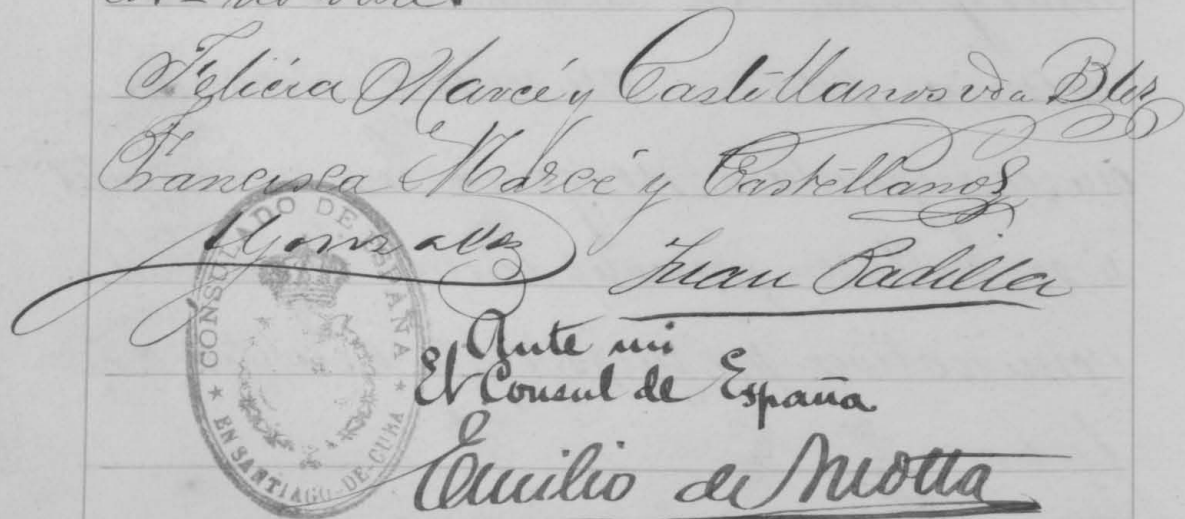 Felicia Marcé y Castellanos vda Blez
Francisca Marcé y Castellanos
J Gonzalez Juan Padilla
CONSULADO DE ESPAÑA
EN SANTIAGO-DE-CUBA
Ante mi
El Consul de España
Emilio de Motta